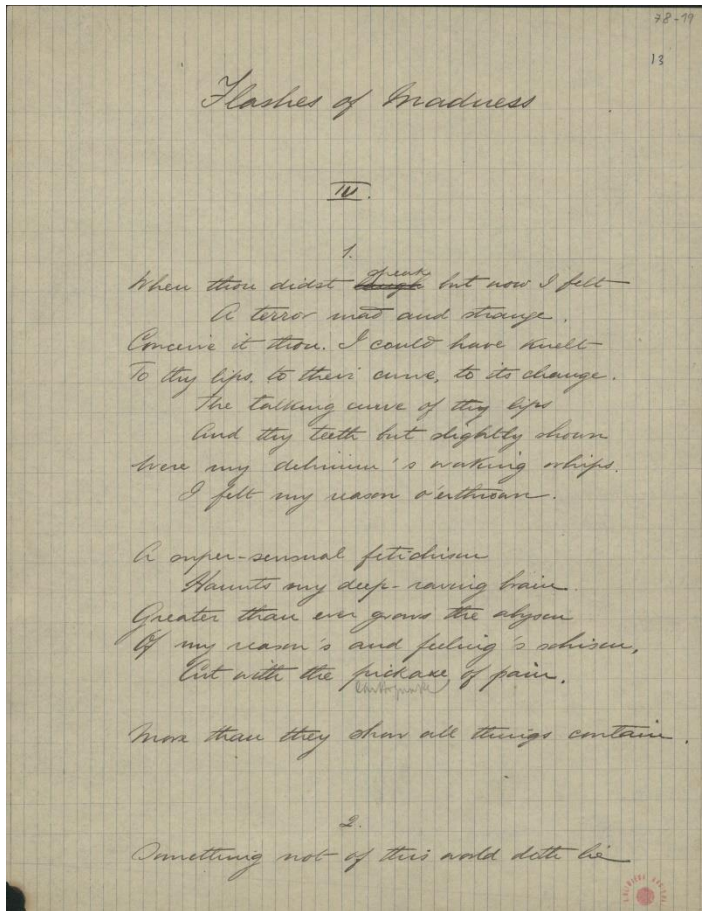 78-79
13
Flashes of Madness
IV.
1.
When thou didst speak but now I felt
A terror mad and strange.
Conceive it thou. I could have knelt
To thy lips, to their curve, to its change.
The talking curve of thy lips
And thy teeth but slightly shown
Were my delirium's waking whips.
I felt my reason o'erthrown.
A super-sensual fetichism
Haunts my deep-raving brain.
Greater than ever grows the abysm
Of my reason's and feeling's schism,
Cut with the pickaxe of pain.
(earthquake)
More than they show all things contain.
2.
Something not of this world doth lie